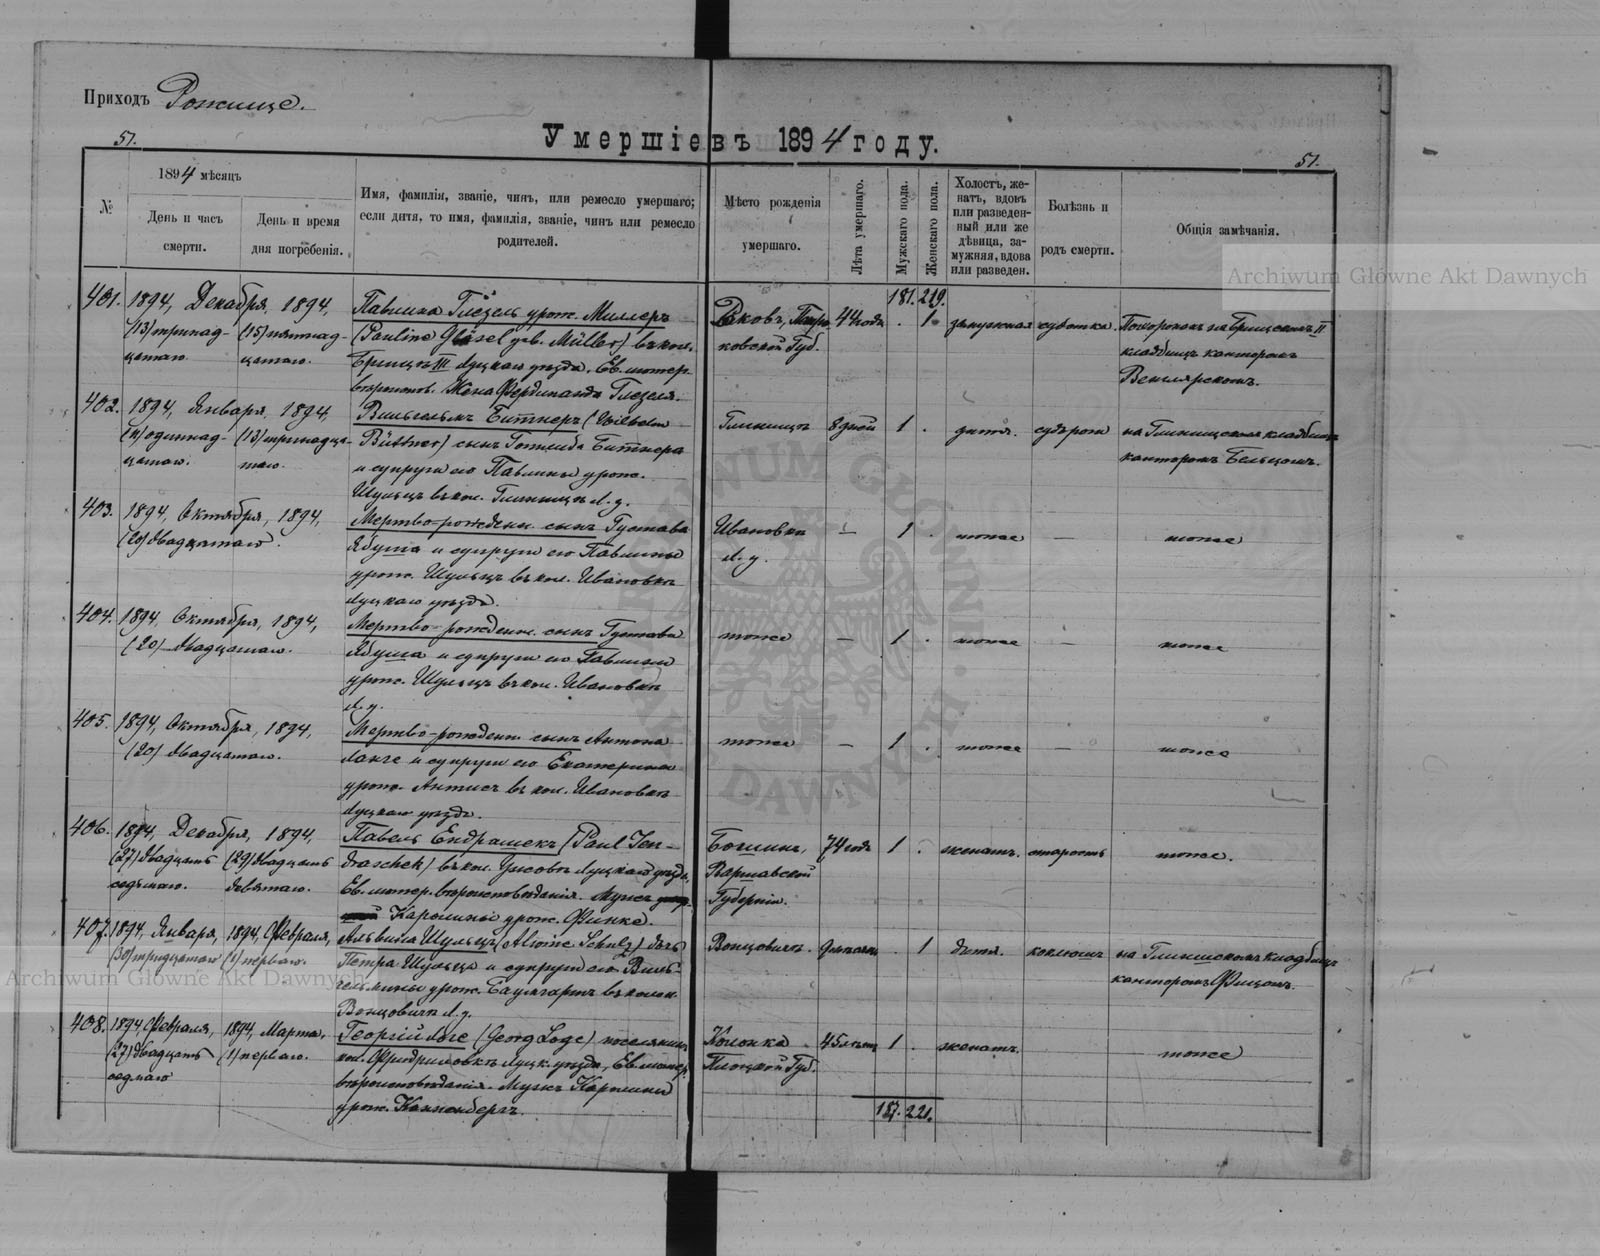 Приходъ Рожище.
51.
Умершіе въ 1894 году.
51.
№
1894 мѣсяцъ
День и часъ смерти.
День и время дня погребенія.
Имя, фамилія, званіе, чинъ, или ремесло умершаго;
если дитя, то имя, фамилія, званіе, чинъ или ремесло
родителей.
Мѣсто рожденія
умершаго.
Лѣта умершаго.
Мужскаго пола.
Женскаго пола.
Холостъ, же-
натъ, вдовъ
или разведен-
ный или же
дѣвица, за-
мужняя, вдова
или разведен.
Болѣзнь и
родъ смерти.
Общія замѣчанія.
181. 219.
401. 1894, Декабря, 1894,
(13) тринад- (15) пятнад-
цатаго. цатаго.
Павлина Глезель урож. Миллеръ
(Pauline Gläsel geb. Müller) въ кол.
Брищъ III Луцкаго уѣзда, Ев. лютер.
вѣроисповѣд. Жена Фердинанда Глезеля.
Раковъ, Петро-
ковской Губ.
44 года . 1 замужняя
Похороненъ на Брищскомъ II
кладбищѣ канторомъ
402. 1894, Января, 1894,
(11) одиннад- (13) тринадца-
цатаго. таго.
Вильгельмъ Битнеръ (Wilhelm
Büttner) сынъ Готлиба Битнера
и супруги его Павлины урож.
Шульцъ въ кол. Глинищѣ Л. у.
Глинищѣ 8 дней 1 . дитя. судороги
на Глинищскомъ кладбищѣ
канторомъ Бельцомъ.
403. 1894, Октября, 1894,
(20) двадцатаго.
Мертво-рожденн. сынъ Густава
Ябуша и супруги его Павлины
урож. Шульцъ въ кол. Ивановкѣ
Луцкаго уѣзда.
Ивановка
Л. у.
— 1 . тоже — тоже
404. 1894, Октября, 1894,
(20) двадцатаго.
Мертво-рожденн. сынъ Густава
Ябуша и супруги его Павлины
урож. Шульцъ въ кол. Ивановкѣ
Л. у.
тоже — 1 . тоже — тоже
405. 1894, Октября, 1894,
(20) двадцатаго.
Мертво-рожденн. сынъ Антона
Ланге и супруги его Екатерины
урож. Антисъ въ кол. Ивановкѣ
Луцкаго уѣзда.
тоже — 1 . тоже — тоже
406. 1894, Декабря, 1894,
(27) двадцать (29) двадцать
седьмаго. девятаго.
Павелъ Ендрашекъ (Paul Jen-
draschek) въ кол. Луцкаго уѣзда,
Ев. лютер. вѣроисповѣданія. Мужъ
Каролины урож. Финке.
Варшавской
Губерніи.
74 года 1 . женатъ. старость тоже.
407. 1894, Января, 1894, Февраля,
(30) тридцатаго (1) перваго.
Альвина Шульцъ (Alwine Schulz) дочь
Петра Шульца и супруги его Виль-
гельмины урож. Баумгартъ въ колон.
Вонцовичъ Л. у.
Вонцовичъ. . 1 дитя. коклюшъ
на Глинищскомъ кладбищѣ
канторомъ Фицомъ.
408. 1894, Февраля, 1894, Марта,
(27) двадцать (1) перваго.
седмаго
Георгій Логе (Georg Loge) поселянинъ
кол. Фридриховкѣ Луцк. уѣзда, Ев. лютер.
вѣроисповѣданія. Мужъ Каролины
урож. Канненбергъ.
Колонка
Плоцкой Губ.
45 лѣтъ 1 . женатъ. тоже
187. 221.
Archiwum Główne Akt Dawnych
Archiwum Główne Akt Dawnych
ARCHIWUM GŁÓWNE AKT DAWNYCH